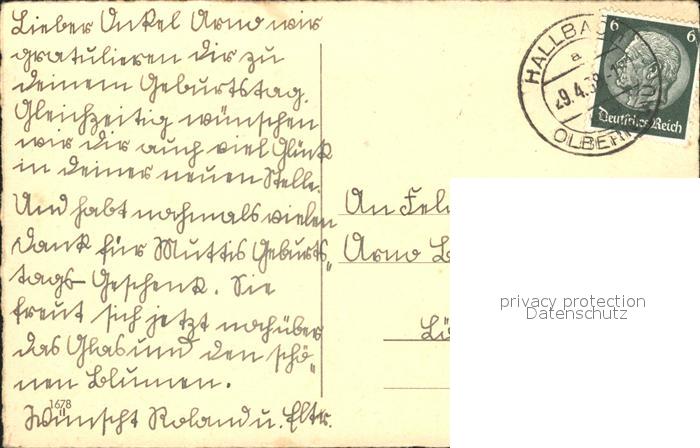 Lieber Onkel Arno wir
gratulieren dir zu
deinem Geburtstag.
Gleichzeitig wünschen
wir dir auch viel Glück
in deiner neuen Stelle.
Und habt nochmals vielen
Dank für Muttis Geburts„
tags-Geschenk. Sie
freut sich jetzt noch über
das Glas und den schö„
nen Blumen.
1678
Wünscht Roland u. Eltr.
HALLBACH
a
29.4.38
OLBERNHAU
6 6
Deutsches Reich
An
Arno
privacy protection
Datenschutz